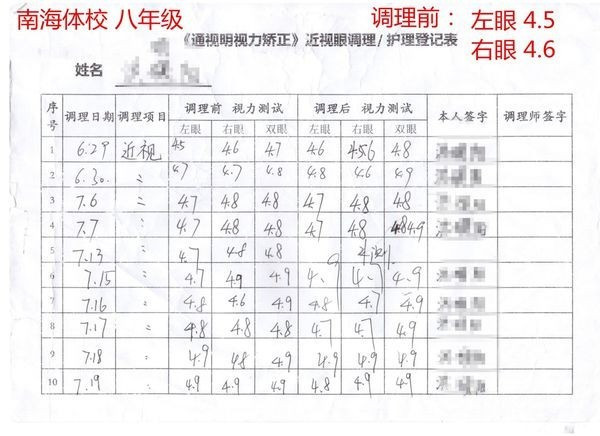 南海体校 八年级 调理前：左眼 4.5
右眼 4.6
《通视明视力矫正》近视眼调理/护理登记表
姓名
序号 调理日期 调理项目 调理前 视力测试 调理后 视力测试 本人签字 调理师签字
左眼 右眼 双眼 左眼 右眼 双眼
1 6.29 近视 4.5 4.6 4.7 4.6 4.8
2 6.30 〃 4.7 4.7 4.8 4.8 4.6 4.9
3 7.6 〃 4.7 4.8 4.8 4.7 4.8 4.8
4 7.7 〃 4.7 4.8 4.8 4.7 4.8 4.9
5 7.13 〃 4.7 4.8 4.8
6 7.15 〃 4.7 4.9 4.9 4.9
7 7.16 〃 4.8 4.6 4.9 4.8 4.7 4.9
8 7.17 〃 4.8 4.8 4.8 4.7 4.7 4.9
9 7.18 〃 4.9 4.8 4.9 4.9 4.9 4.9
10 7.19 〃 4.9 4.9 4.9 4.8 4.9 4.9